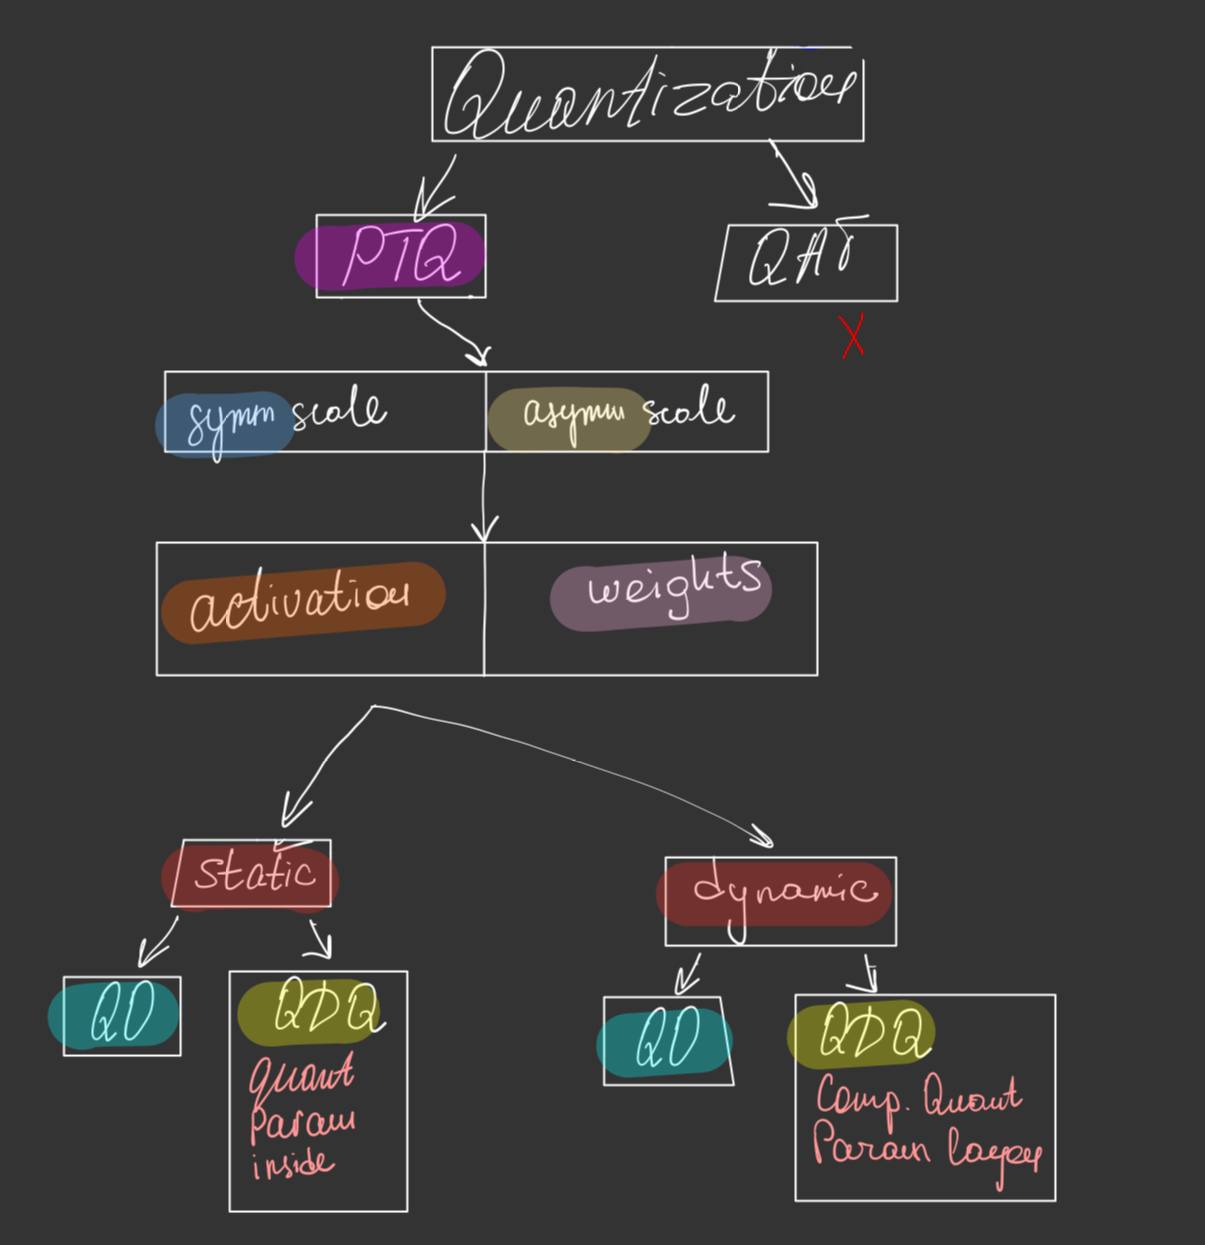 Quantization
PTQ
QAT
X
symm scale
asymm scale
activation
weights
static
dynamic
QO
QDQ
quant
param
inside
QO
QDQ
Comp. Quant
Param layer